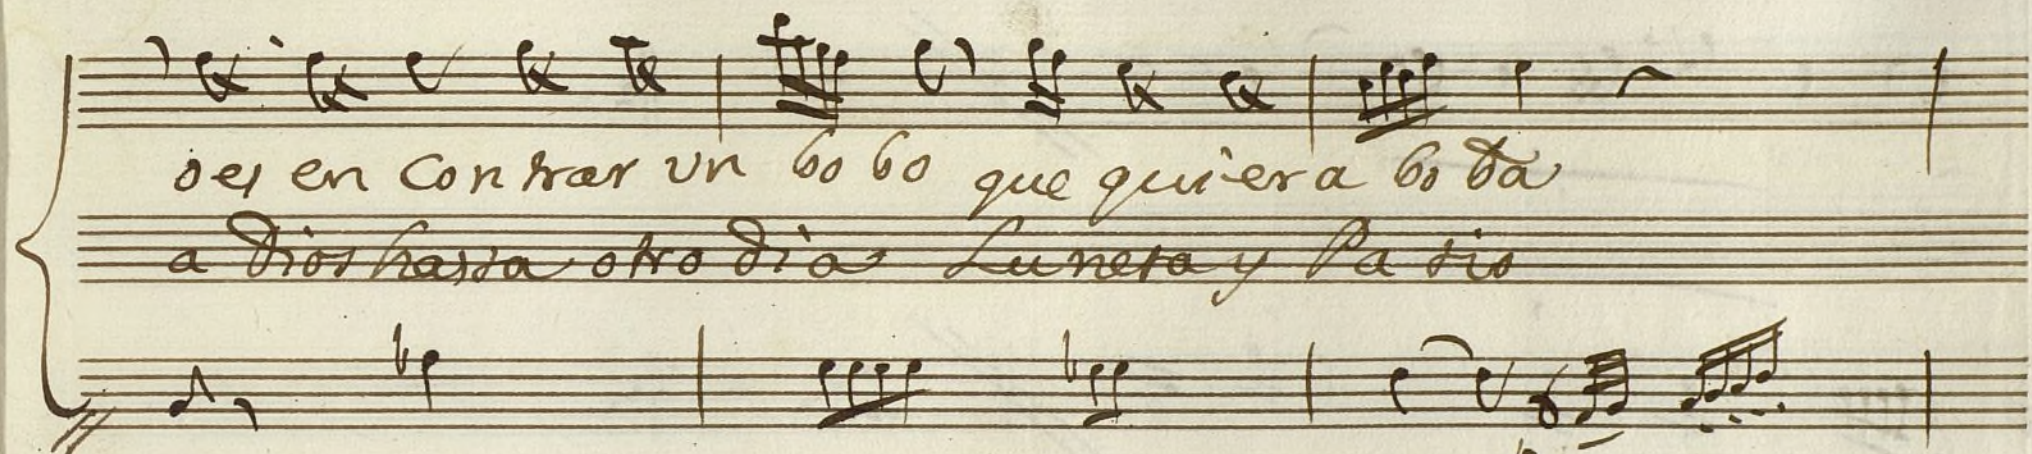 oes en Con trar un bo bo que quiera bo ba
a Dios hasta otro dia Luneta y Pa tio